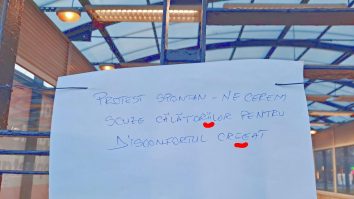 PROTEST SPONTAN - NE CEREM
SCUZE CĂLĂTORIILOR PENTRU
DISCONFORTUL CREEAT